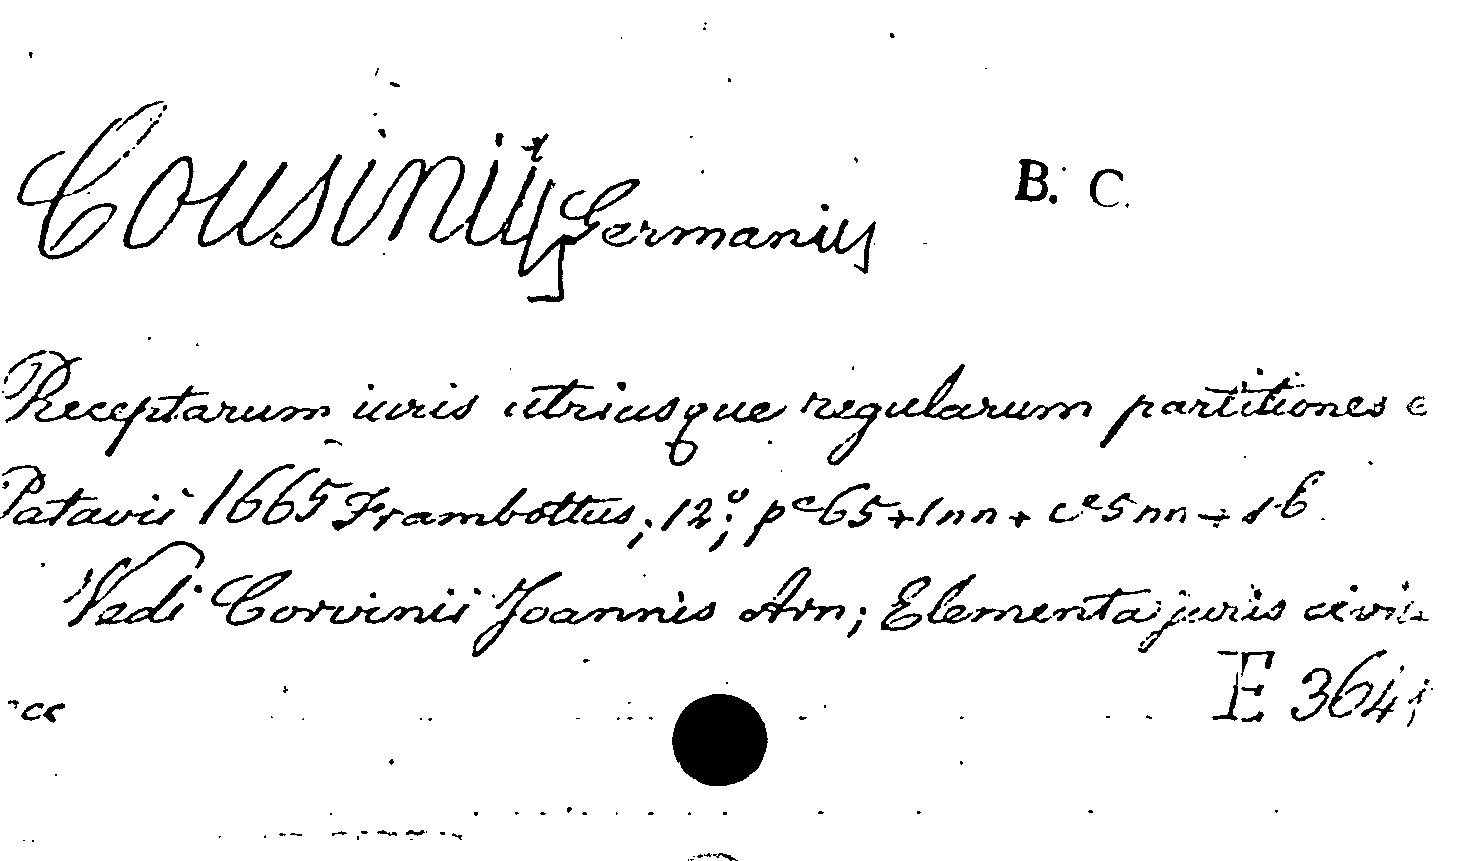 Cousinii Germanii B. C.
Receptarum iuris utriusque regularum partitiones
Patavii 1665 Frambottus; 12°; pe 65+1nn + ce 5nn + 1 b
Vedi Corvinii Joannis Arn; Elementa juris civi
E 364